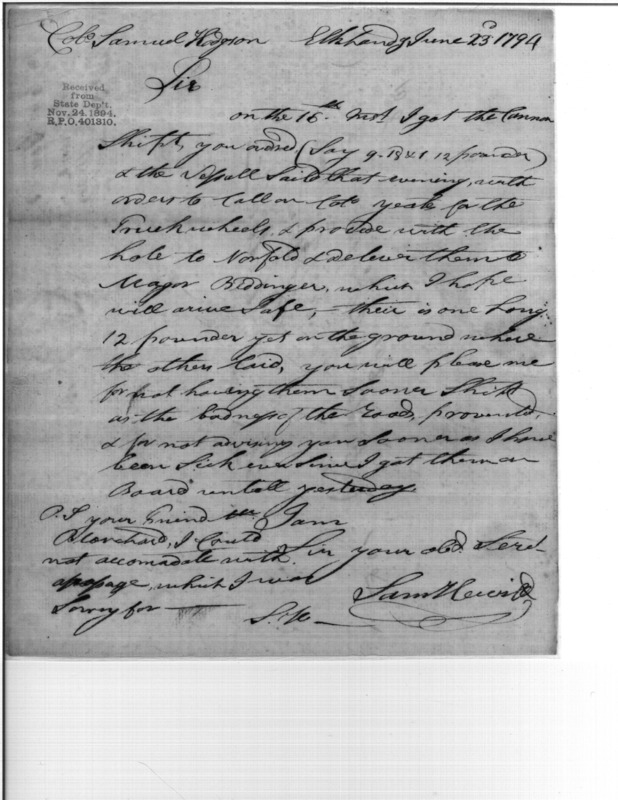 Colo. Samuel Hodgson Elk Landg June 23d 1794
Sir
Received
from
State Dep't.
Nov. 24. 1894.
R.P.O. 401310.
on the 16th Inst I got the Cannon
Shipt, you ordred, (Say 9.
12 pounder)
& the Vessell Saild that evening, with
orders to Call on Colo yeats for the
Truck wheels, & provide with the
hole to Norfold & deliver them to
Major Biddinger, which I hope
will arive Safe, – their is one Long
12 pounder yet on the ground where
the others laid, you will please me
for not having them Sooner Shipt
as the badness of the Roads, provented,
& for not advising you Sooner as I have
been Sick ever Since I got them on
Board untill yesterday.
I am
Sir your obd. Servt
Saml Hewitt
P.S your Friend Mr
Blanchard, I Could
not accomadate with
apasage, which I was
Sorrey for —
S. H. —